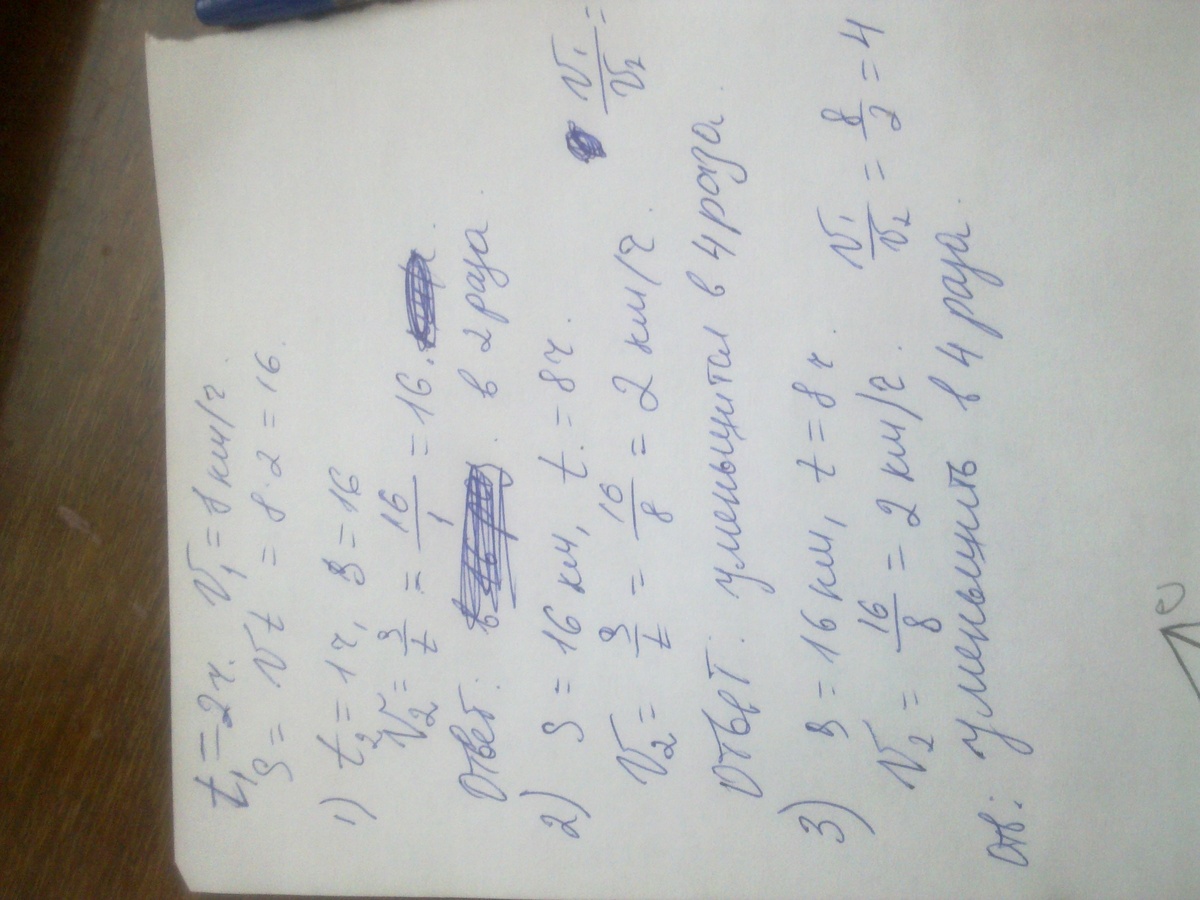 t₁ = 2ч. V₁ = 8 км/ч.
S = Vt = 8 · 2 = 16.
1) t₂ = 1ч, S = 16
V₂ = S/t = 16/1 = 16.
Ответ: в 2 раза
2) S = 16 км, t = 8ч.
V₂ = S/t = 16/8 = 2 км/ч. V₁/V₂ =
Ответ: уменьшитал в 4 раза.
3) S = 16 км, t = 8ч
V₂ = 16/8 = 2 км/ч. V₁/V₂ = 8/2 = 4
Отв: уменьшить в 4 раза.